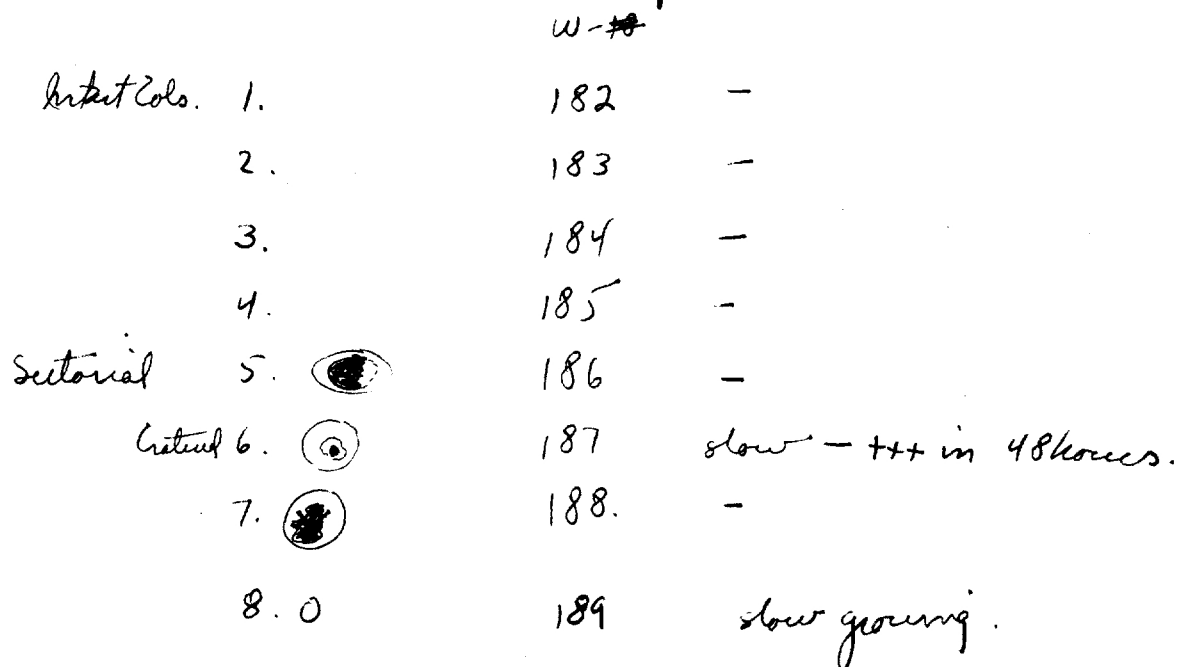 W-
Intact Cols. 1. 182 –
2. 183 –
3. 184 –
4. 185 –
Sectorial 5. 186 –
6. 187 slow – +++ in 48 hours.
7. 188. –
8. 0 189 slow growing.